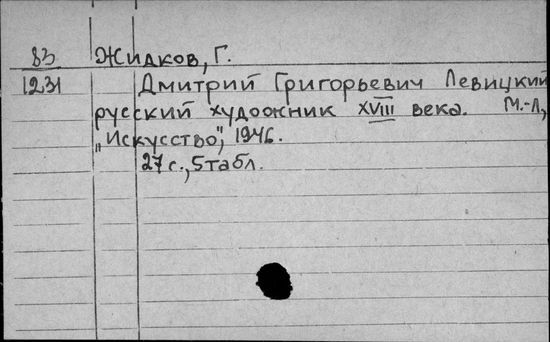 83 Жидков, Г.
1231 Дмитрий Григорьевич Левицкий
русский художник XVIII века. М.-Л.,
„Искусство", 1946.
27 с., 5 табл.